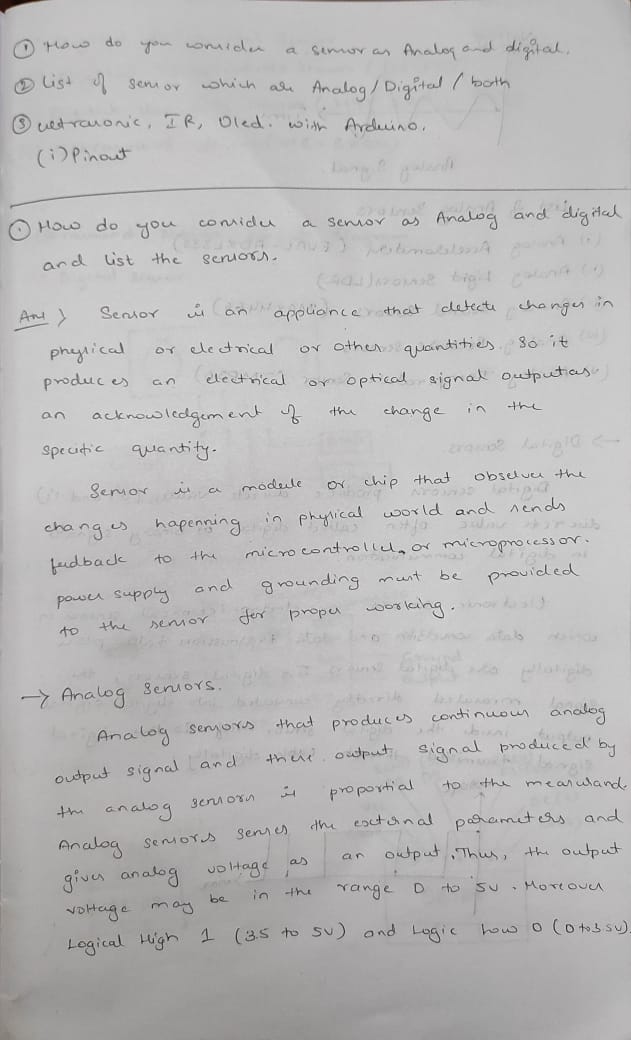 ① How do you consider a sensor as Analog and digital.
② List of sensor which are Analog/Digital/both
③ ultrasonic, IR, Oled. with Arduino.
(i) Pinout
① How do you consider a sensor as Analog and digital
and list the sensors.
Ans) Sensor is an appliance that detects changes in
physical or electrical or other quantities. So it
produces an electrical or optical signal output as
an acknowledgement of the change in the
specific quantity.
Sensor is a module or chip that observes the
changes hapenning in physical world and sends
feedback to the microcontroller or microprocessor.
power supply and grounding must be provided
to the sensor for proper working.
→ Analog sensors.
Analog sensors that produces continuous analog
output signal and these output signal produced by
the analog sensors is proportial to the measurand.
Analog sensors senses the external parameters and
gives analog voltage as an output. Thus, the output
voltage may be in the range 0 to 5v. Moreover
Logical High 1 (3.5 to 5v) and Logic low 0 (0 to 3.5v).